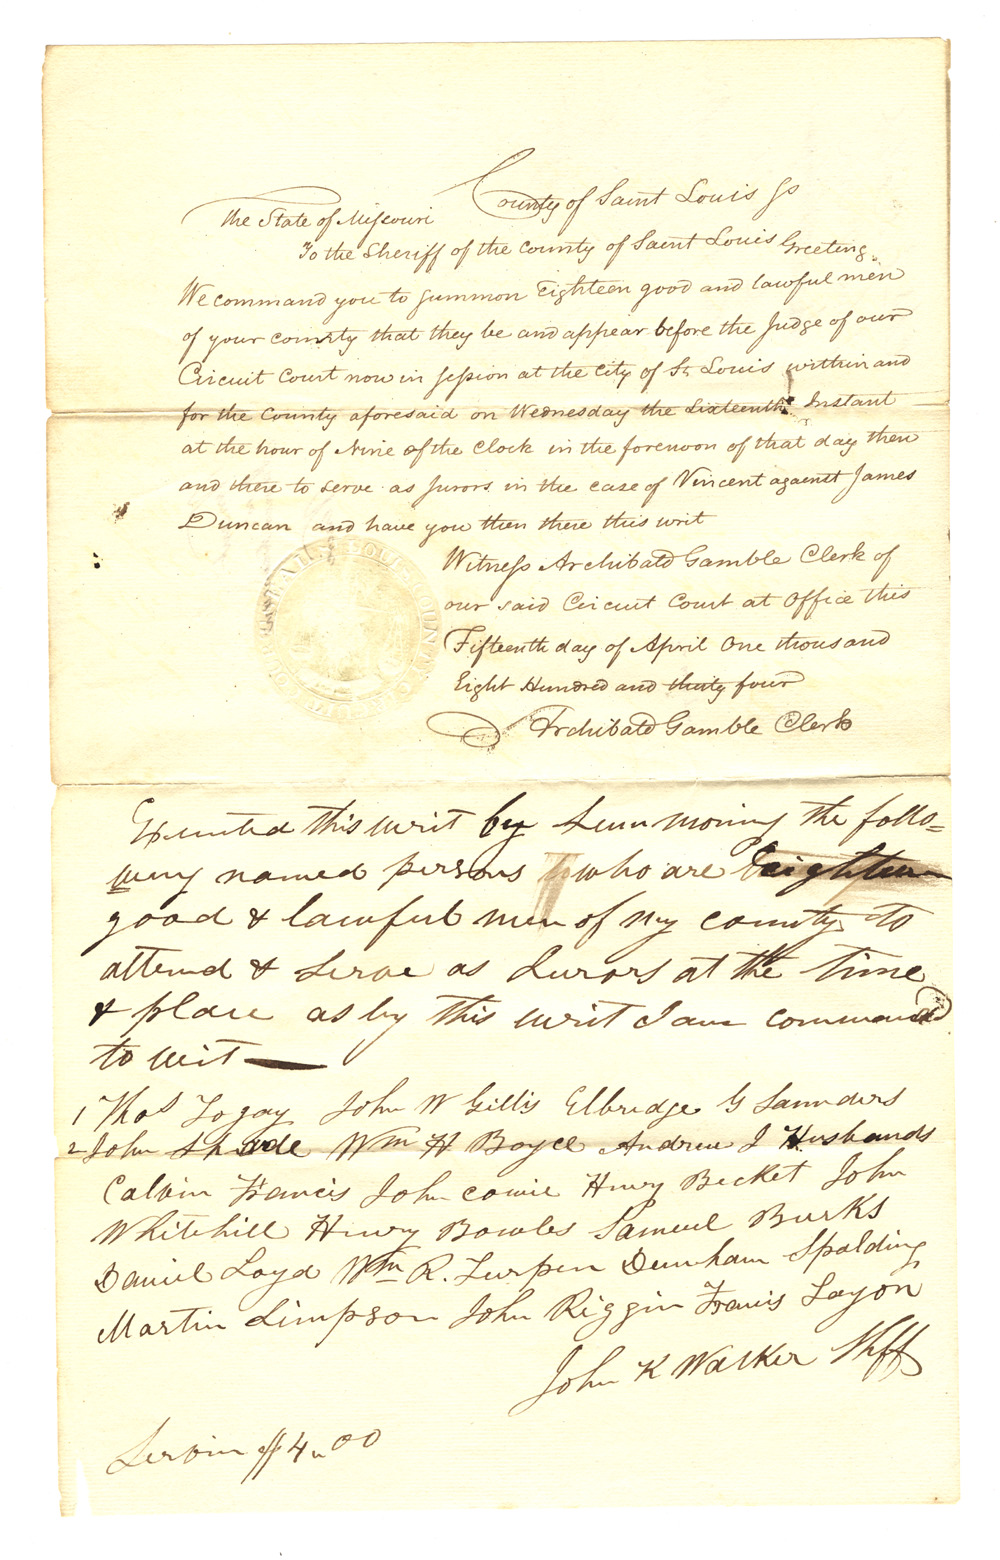 County of Saint Louis Ss
The State of Missouri
To the Sheriff of the County of Saint Louis Greeting
We command you to summon Eighteen good and lawful men
of your county that they be and appear before the Judge of our
Circuit Court now in session at the City of St. Louis within and
for the County aforesaid on Wednesday the Sixteenth Instant
at the hour of Nine of the Clock in the forenoon of that day then
and there to serve as Jurors in the case of Vincent against James
Duncan and have you then there this writ
Witness Archibald Gamble Clerk of
our said Circuit Court at Office this
Fifteenth day of April One thousand
Eight Hundred and thirty four
Archibald Gamble Clerk
Executed this writ by Summoning the follo=
wing named persons who are eighteen
good & lawful men of my county to
attend & Serve as Jurors at the time
& place as by this writ I am command
to wit
1 Thos Togay John W Gillis Elbridge G Saunders
2 John Shade Wm H Boyce Andrew J Husbands
Calvin Francis John Cowie Henry Becket John
Whitehill Henry Bowles Samuel Burks
Daniel Loyd Wm R. Turpen Dunham Spalding
Martin Simpson John Riggin Francis Sayon
John K Walker Shff
Servin $4.00